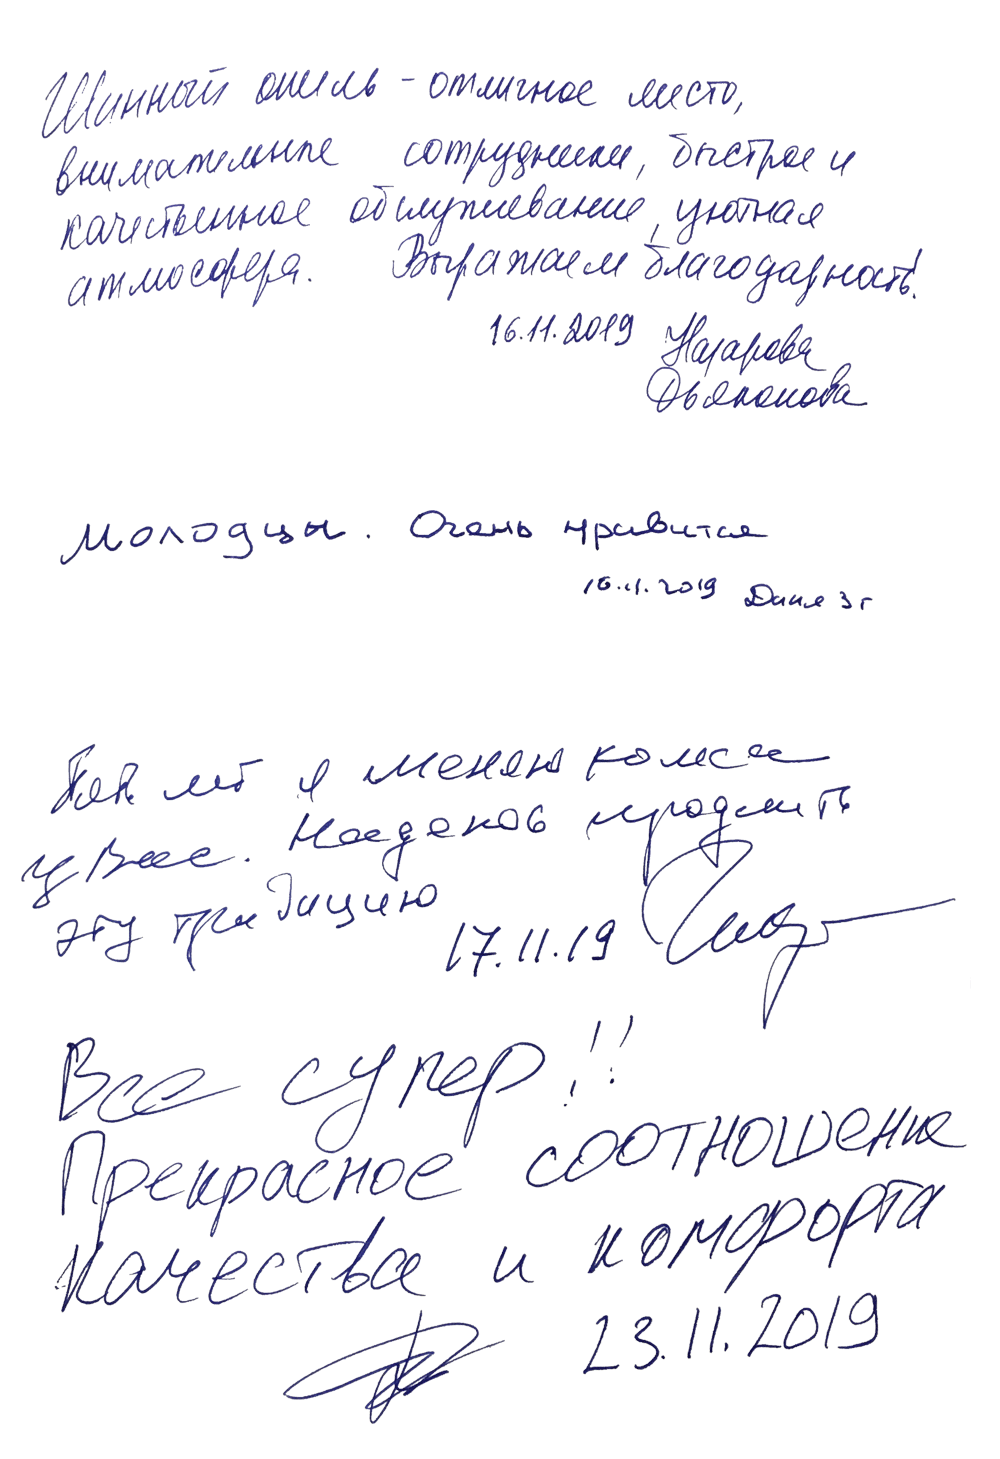 Шинный отель - отличное место,
внимательные сотрудники, быстрое и
качественное обслуживание, уютная
атмосфера. Выражаем благодарность!
16.11.2019 Назарова
Дьяконова
Молодцы. Очень нравится
16.11.2019 Даня 3 г
Пять лет я меняю колеса
у Вас. Надеюсь продлить
эту традицию
17.11.19
Все супер!!!
Прекрасное соотношение
качества и комфорта
23.11.2019